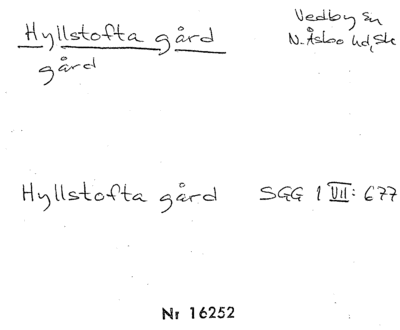 Hyllstofta gård
gård
Vedby sn
N. Åsbo hd, Sk
Hyllstofta gård SGG 1 VII: 677
Nr 16252